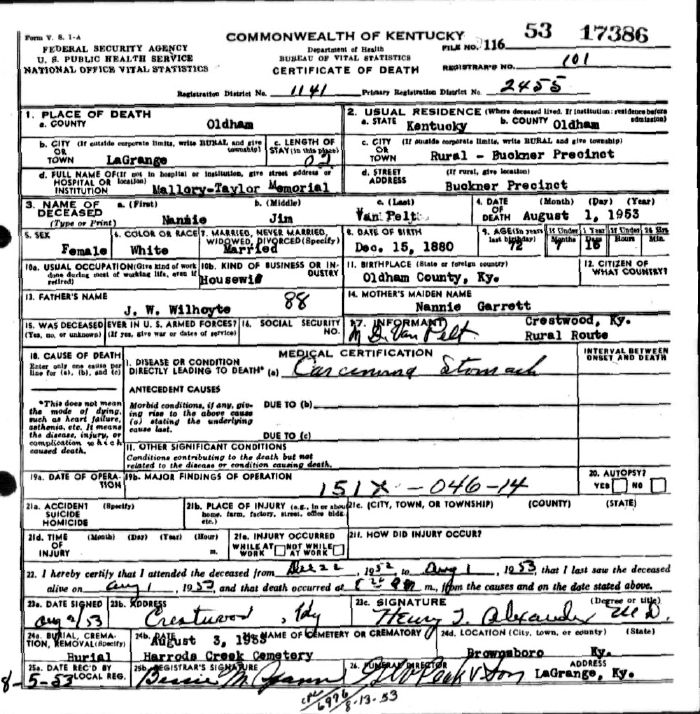 Form V. S. 1-A
COMMONWEALTH OF KENTUCKY
FILE NO. 116 53 17386
FEDERAL SECURITY AGENCY
U. S. PUBLIC HEALTH SERVICE
NATIONAL OFFICE VITAL STATISTICS
Department of Health
BUREAU OF VITAL STATISTICS
CERTIFICATE OF DEATH
REGISTRAR'S NO. 101
Registration District No. 1141 Primary Registration District No. 2455
1. PLACE OF DEATH
a. COUNTY Oldham
2. USUAL RESIDENCE (Where deceased lived. If institution: residence before admission)
a. STATE Kentucky b. COUNTY Oldham
b. CITY (If outside corporate limits, write RURAL and give township)
OR TOWN LaGrange
c. LENGTH OF STAY (in this place)
c. CITY (If outside corporate limits, write RURAL and give township)
OR TOWN Rural - Buckner Precinct
d. FULL NAME OF (If not in hospital or institution, give street address or location)
HOSPITAL OR INSTITUTION Mallory-Taylor Memorial
d. STREET ADDRESS (If rural, give location)
Buckner Precinct
3. NAME OF DECEASED (Type or Print)
a. (First) Nannie b. (Middle) Jim c. (Last) Van Pelt
4. DATE OF DEATH (Month) (Day) (Year) August 1, 1953
5. SEX Female
6. COLOR OR RACE White
7. MARRIED, NEVER MARRIED, WIDOWED, DIVORCED (Specify) Married
8. DATE OF BIRTH Dec. 15, 1880
9. AGE (In years last birthday) 72 If Under 1 Year Months 7 Days 16 If Under 24 Hrs. Hours Min.
10a. USUAL OCCUPATION (Give kind of work done during most of working life, even if retired)
10b. KIND OF BUSINESS OR INDUSTRY
Housewif
11. BIRTHPLACE (State or foreign country) Oldham County, Ky.
12. CITIZEN OF WHAT COUNTRY?
13. FATHER'S NAME J. W. Wilhoyte 88
14. MOTHER'S MAIDEN NAME Nannie Garrett
15. WAS DECEASED EVER IN U. S. ARMED FORCES?
(Yes, no, or unknown) (If yes, give war or dates of service)
16. SOCIAL SECURITY NO.
17. INFORMANT Crestwood, Ky.
Van Pelt Rural Route
18. CAUSE OF DEATH
Enter only one cause per line for (a), (b), and (c)
MEDICAL CERTIFICATION
INTERVAL BETWEEN ONSET AND DEATH
I. DISEASE OR CONDITION DIRECTLY LEADING TO DEATH* (a) Carcinoma Stomach
*This does not mean the mode of dying, such as heart failure, asthenia, etc. It means the disease, injury, or complication which caused death.
ANTECEDENT CAUSES
Morbid conditions, if any, giving rise to the above cause (a) stating the underlying cause last.
DUE TO (b)
DUE TO (c)
II. OTHER SIGNIFICANT CONDITIONS
Conditions contributing to the death but not related to the disease or condition causing death.
19a. DATE OF OPERATION
19b. MAJOR FINDINGS OF OPERATION
151X-046-14
20. AUTOPSY? YES NO
21a. ACCIDENT SUICIDE HOMICIDE (Specify)
21b. PLACE OF INJURY (e.g., in or about home, farm, factory, street, office bldg., etc.)
21c. (CITY, TOWN, OR TOWNSHIP) (COUNTY) (STATE)
21d. TIME OF INJURY (Month) (Day) (Year) (Hour) m.
21e. INJURY OCCURRED WHILE AT WORK NOT WHILE AT WORK
21f. HOW DID INJURY OCCUR?
22. I hereby certify that I attended the deceased from Dec 22, 1952 to Aug 1, 1953, that I last saw the deceased
alive on Aug 1, 1953, and that death occurred at m., from the causes and on the date stated above.
23a. DATE SIGNED Aug 2/53
23b. ADDRESS Crestwood, Ky
23c. SIGNATURE (Degree or title) Henry J. Alexander M.D.
24a. BURIAL, CREMATION, REMOVAL (Specify) Burial
24b. DATE August 3, 1953
NAME OF CEMETERY OR CREMATORY Harrods Creek Cemetery
24d. LOCATION (City, town, or county) (State) Brownsboro Ky.
25a. DATE REC'D BY LOCAL REG. 8-5-53
25b. REGISTRAR'S SIGNATURE Bessie M.
26. FUNERAL DIRECTOR Peak & Son
ADDRESS LaGrange, Ky.
6976
8-13-53